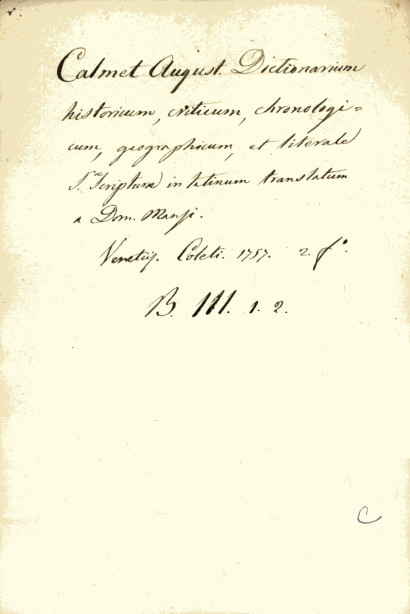 Calmet August. Dictionarium
historicum, criticum, chronologi=
cum, geographicum, et literale
S.ræ Scripturæ in latinum translatum
a Dom. Mansi.
Venetijs. Coleti. 1757. 2. f.o
B. III. 1. 2.
C